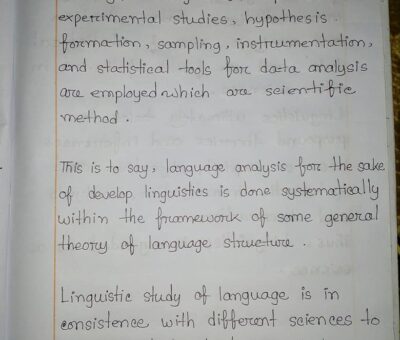 experimental studies, hypothesis
formation, sampling, instrumentation,
and statistical tools for data analysis
are employed which are scientific
method.
This is to say, language analysis for the sake
of develop linguistics is done systematically
within the framework of some general
theory of language structure.
Linguistic study of language is in
consistence with different sciences to